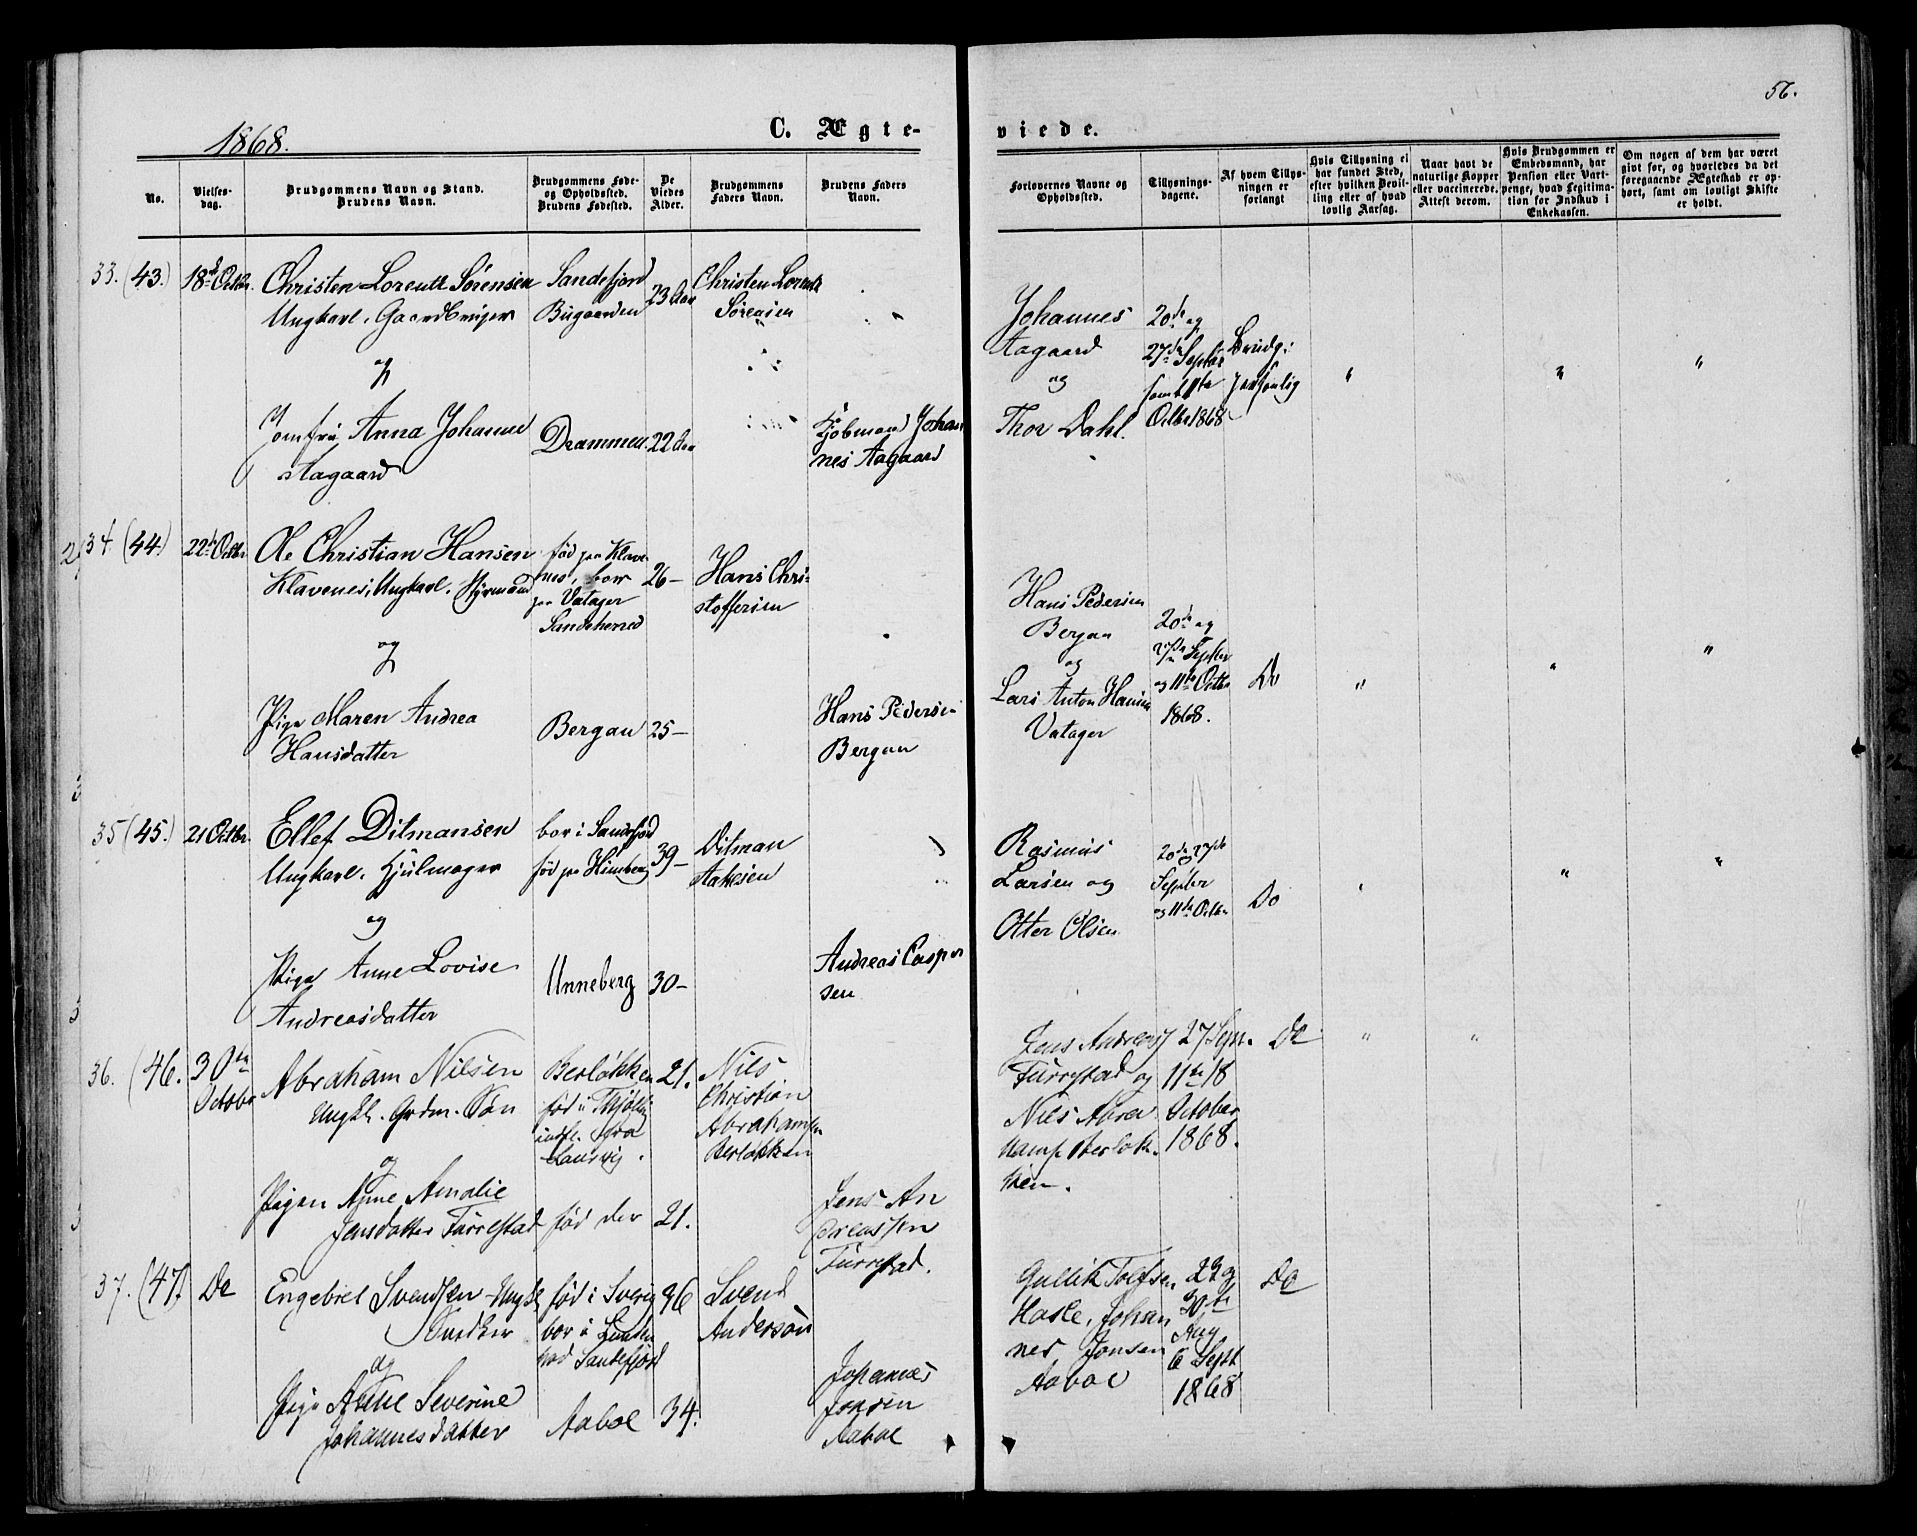 56.
1868.
C. Ægte-
viede.
No.
Vielses-
dag.
Brudgommens Navn og Stand.
Brudens Navn.
Brudgommens Føde-
og Opholdssted.
Brudens Fødested.
De
Viedes
Alder.
Brudgommens
Faders Navn.
Brudens Faders
Navn.
Forlovernes Navne og
Opholdssted.
Tillysnings-
dagene.
Af hvem Tillys-
ningen er
forlangt
Hvis Tillysning ei
har fundet Sted,
efter hvilken Bevil-
ling eller af hvad
lovlig Aarsag.
Naar havt de
naturlige Kopper
eller vaccinerede.
Attest derom.
Hvis Brudgommen er
Embedsmand, har
Pension eller Vart-
penge, hvad Legitima-
tion for Indskud i
Enkekassen.
Om nogen af dem har været
givt før, og hvorledes da det
foregaaende Ægteskab er op-
hørt, samt om lovligt Skifte
er holdt.
33. (43.)
18de Octbr.
Christen Lorentz Sørensen
Ungkarl. Gaardbruger
og
Jomfru Anna Johanne
Aagaard
Sandefjord
Bugaarden
Drammen
23 Aar
22 Aar
Christen Lorentz
Sørensen
Kjøbmand Johan
nes Aagaard
Johannes
Aagaard
og
Thor Dahl.
20de og
27de Septbr
samt 11te
Octbr 1868
Brudg:
personlig
34. (44.)
22de Octbr
Ole Christian Hansen
Klavenes, Ungkarl. Styrmand
og
Pige Maren Andrea
Hansdatter
fød paa Klave-
nes, bor
paa Vatager
Sandeherred
Bergan
26-
25-
Hans Chri-
stoffersen
Hans Pedersen
Bergan
Hans Pedersen
Bergan
og
Lars Anton Hansen
Vatager
20de og
27de Septbr
og 11te Octbr
1868.
Do
35 (45.)
21 Octbr.
Ellef Ditmansen
Ungkarl. Hjulmager
og
Pige Anne Lovise
Andreasdatter
bor i Sandefjord
fød paa Himberg
Unneberg
39-
30-
Ditman
Aakesen
Andreas Casper
sen
Rasmus
Larsen og
Otter Olsen
20de og 27de
Septbr
og 11te Octbr
Do
36. (46.
30te
October
Abraham Nilsen
Ungk. Grdm. Søn
og
Pigen Anne Amalie
Jensdatter Furrestad
Berløkken
fød i Thjølling
indfl. fra
Laurvig.
fød der
21.
21.
Nils
Christian
Abrahamsen
Berløkken
Jens An
dreassen
Furrestad.
Jens Andreas
Furrestad og
Nils Abra
hams Berløk-
ken.
27 Sept.
11te 18
October
1868.
Do
37. (47.)
Do
Engebret Svendsen Ungk.
Snedker
og
Pige Anne Severine
Johannesdatter
fød i Sverig
bor i Lunden
ved Sandefjord
Aaboe
36
34.
Svend
Anderson
Johannes
Jonsen
Aaboe
Gullik Tolfsen
Hasle, Johan
nes Jonsen
Aaboe
23 og
30te
Aug
6 Sept
1868
Do